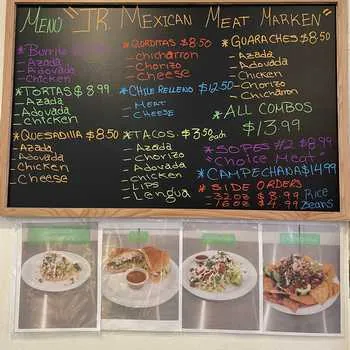 Menu "JR. Mexican Meat Marken"
*Burrito
- Azada
- Adovada
- Chicken
*TORTAS $8.99
- Azada
Adovada
Chicken
*Quesadilla $8.50
- Azada
Adovada
Chicken
- Cheese
*Gorditas $8.50
- Chicharron
- Chorizo
- Cheese
*Chile Relleno $12.50
- Meat
- Cheese
*TACOS. $3.50 each
- Azada
- Chorizo
- Adovada
- chicken
- Lips
- Lengua
*Guaraches $8.50
- Azada
- Adovada
- Chicken
- Chorizo
- Chicharron
*ALL COMBOS
$13.99
*SOPES #2 $8.99
*Choice Meat
*CAMPECHANA $14.99
*SIDE ORDERS
- 32oz $8.99 Rice
- 16oz $4.99 Beans